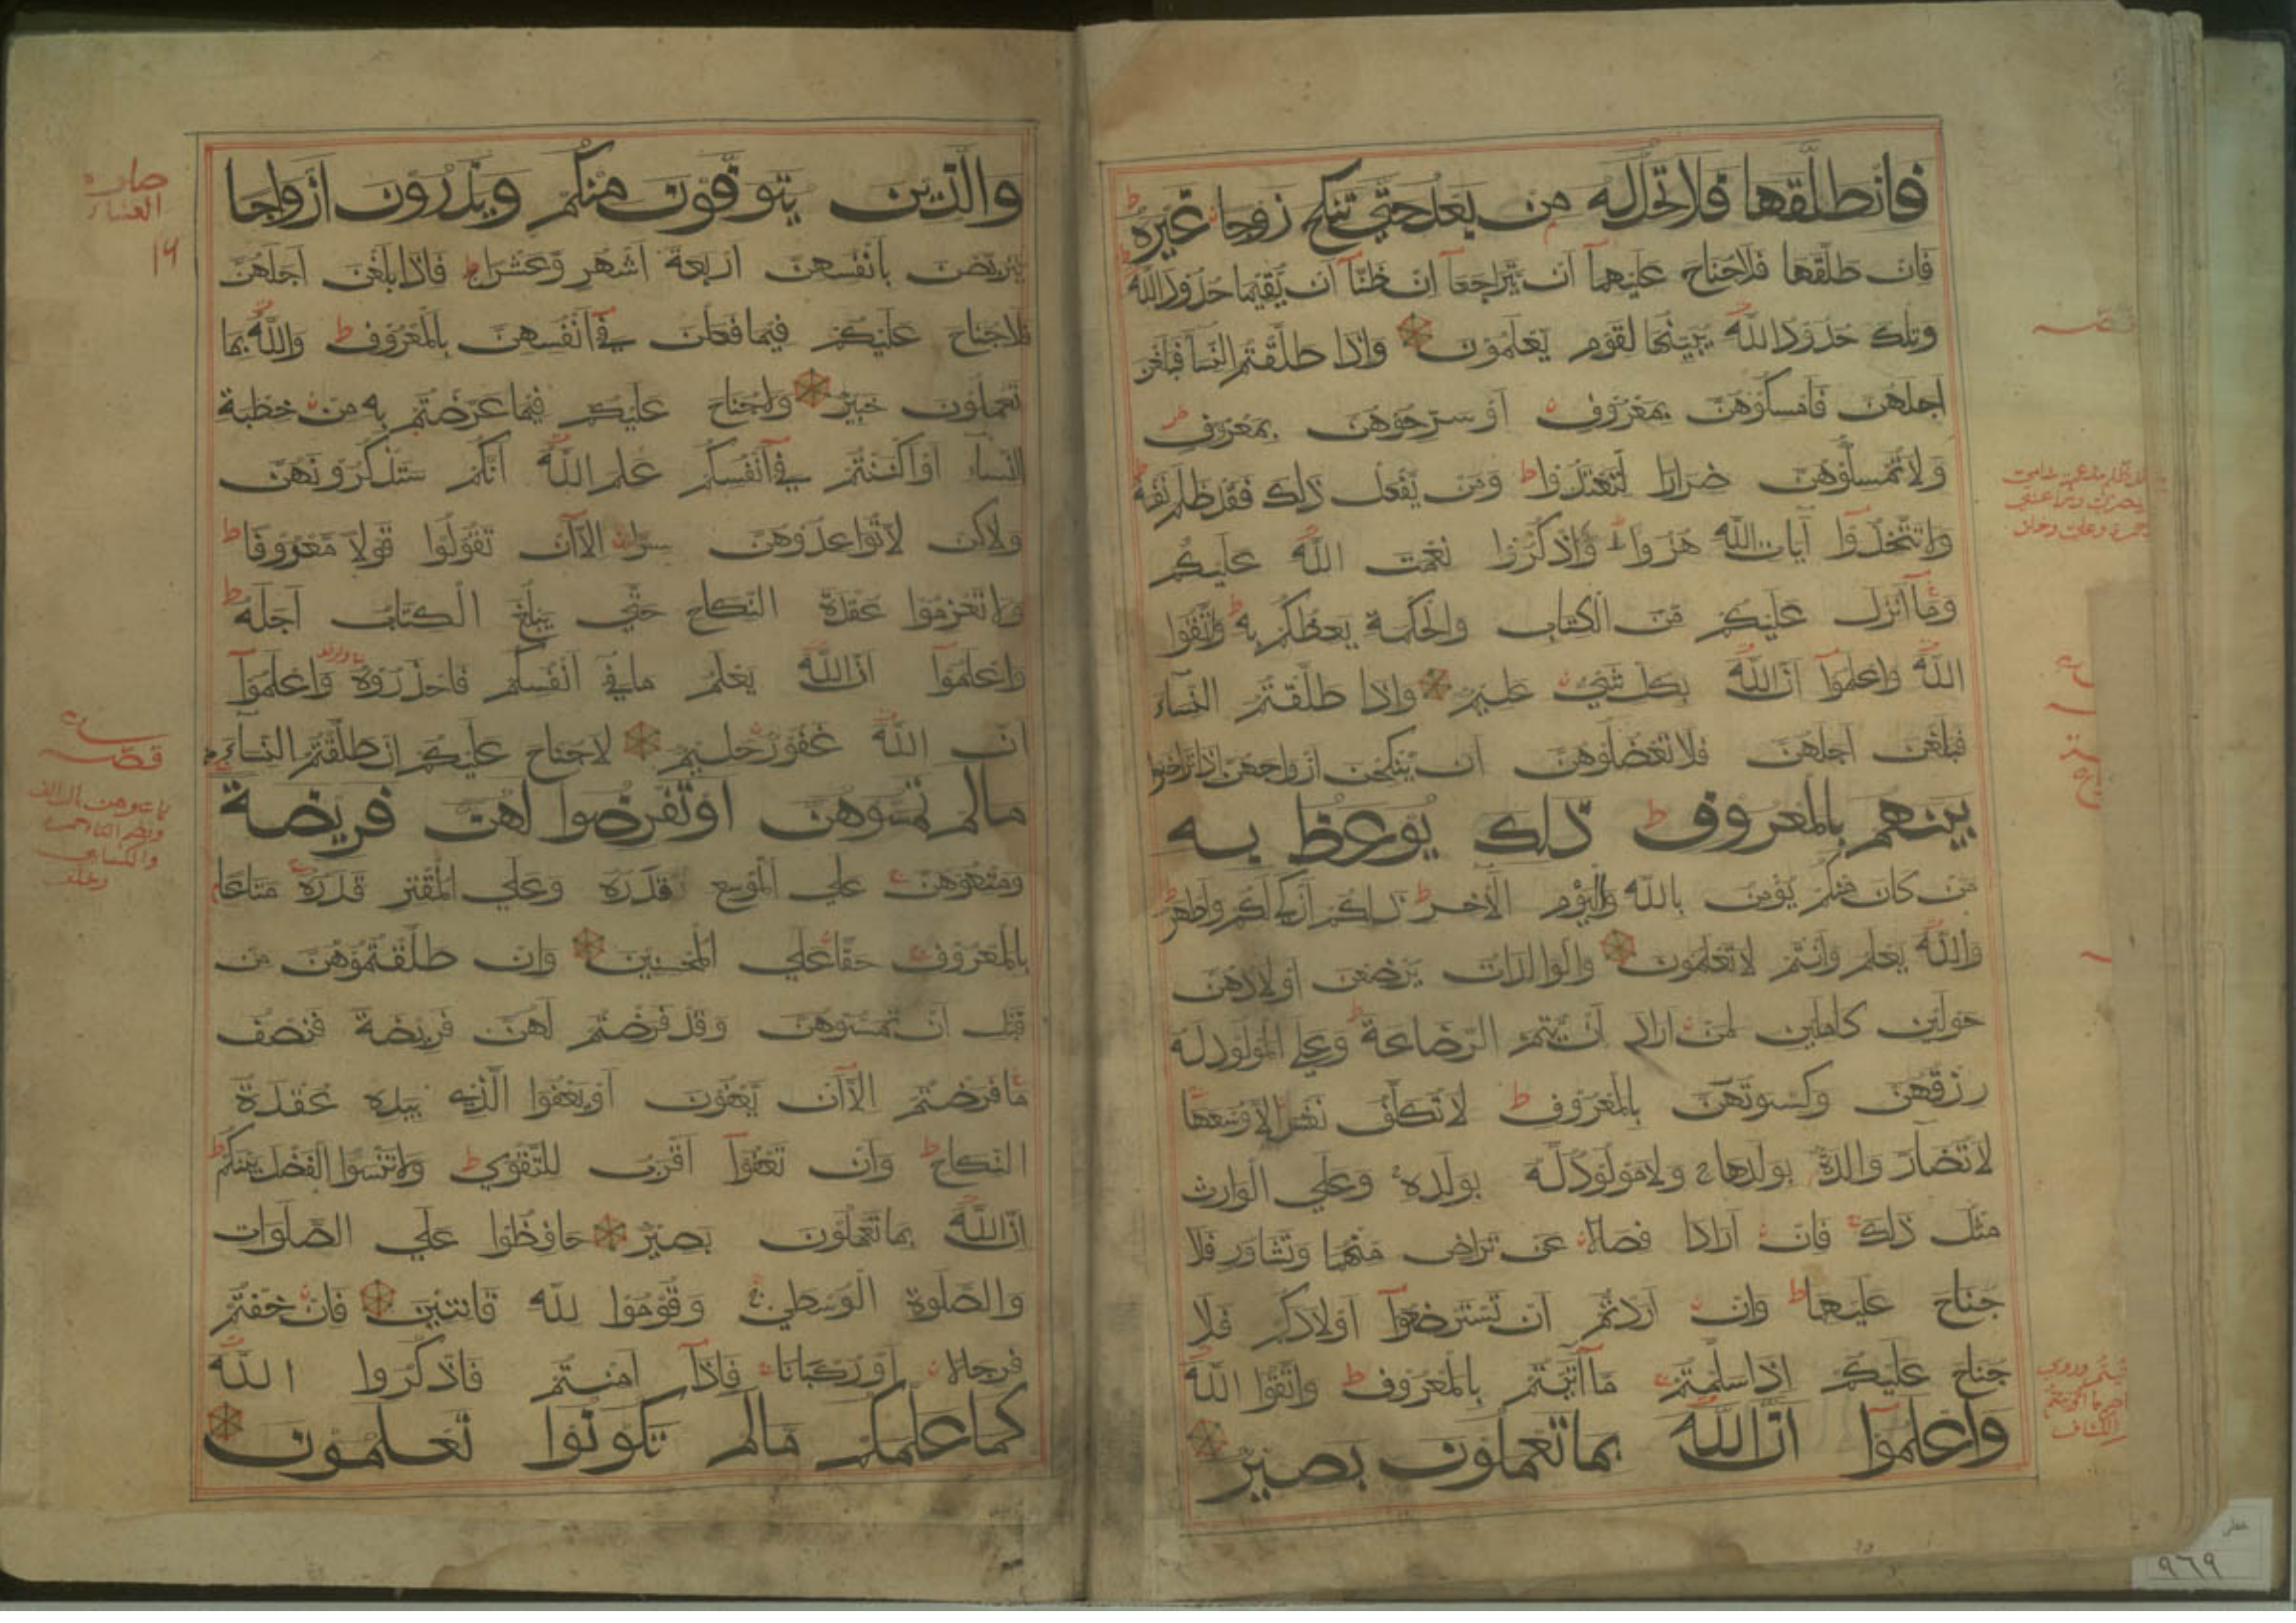 فان طلقها فلا تحل له من بعد حتي تنكح زوجا غيره ط
فان طلقها فلا جناح عليهما ان يتراجعا ان ظنا ان يقيما حدود الله ط
وتلك حدود الله يبينها لقوم يعلمون واذا طلقتم النسا فبلغن
اجلهن فامسكوهن بمعروف او سرحوهن بمعروف
ولا تمسكوهن ضرارا لتعتدوا ط ومن يفعل ذلك فقد ظلم نفسه ط
ولا تتخذوا آيات الله هزوا واذكروا نعمت الله عليكم
وما انزل عليكم من الكتاب والحكمة يعظكم به ط واتقوا
الله واعلموا ان الله بكل شيء عليم واذا طلقتم النساء
فبلغن اجلهن فلا تعضلوهن ان ينكحن ازواجهن اذا تراضوا
بينهم بالمعروف ط ذلك يوعظ به
من كان منكم يؤمن بالله واليوم الآخر ط ذلكم ازكي لكم واطهر ط
والله يعلم وانتم لا تعلمون والوالدات يرضعن اولادهن
حولين كاملين لمن اراد ان يتم الرضاعة ط وعلي المولود له
رزقهن وكسوتهن بالمعروف ط لا تكلف نفس الا وسعها
لا تضار والدة بولدها ولا مولود له بولده وعلي الوارث
مثل ذلك فان ارادا فصالا عن تراض منهما وتشاور فلا
جناح عليهما ط وان اردتم ان تسترضعوا اولادكم فلا
جناح عليكم اذا سلمتم ما آتيتم بالمعروف ط واتقوا الله
واعلموا ان الله بما تعملون بصير
والذين يتوفون منكم ويذرون ازواجا
يتربصن بانفسهن اربعة اشهر وعشرا فاذا بلغن اجلهن
فلا جناح عليكم فيما فعلن في انفسهن بالمعروف ط والله بما
تعملون خبير ولا جناح عليكم فيما عرضتم به من خطبة
النساء او اكننتم في انفسكم علم الله انكم ستذكرونهن
ولاكن لا تواعدوهن سرا الا ان تقولوا قولا معروفا ط
ولا تعزموا عقدة النكاح حتي يبلغ الكتاب اجله ط
واعلموا ان الله يعلم ما في انفسكم فاحذروه واعلموا
ان الله غفور حليم لا جناح عليكم ان طلقتم النساء
ما لم تمسوهن او تفرضوا لهن فريضة
ومتعوهن علي الموسع قدره وعلي المقتر قدره متاعا
بالمعروف حقا علي المحسنين وان طلقتموهن من
قبل ان تمسوهن وقد فرضتم لهن فريضة فنصف
ما فرضتم الا ان يعفون او يعفوا الذي بيده عقدة
النكاح ط وان تعفوا اقرب للتقوي ط ولا تنسوا الفضل بينكم ط
ان الله بما تعملون بصير حافظوا علي الصلوات
والصلوة الوسطي وقوموا لله قانتين فان خفتم
فرجالا او ركبانا فاذا امنتم فاذكروا الله
كما علمكم ما لم تكونوا تعلمون
قصه
والكسايي
وخلف
خطی
٩٦٩